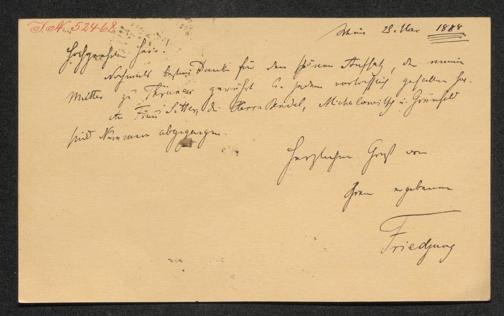 I.N. 52468
Wien 28. Mai 1888
Hochgeehrter Herr!
Nochmals besten Dank für den schönen Aufsatz, der meine
Mutter zu Thränen gerührt u. jedem vortrefflich gefallen hat.
An Frau Littrow, die Herren Michalowitsch u. Grünfeld
sind Nummern abgegangen.
Herzlichen Gruß von
Ihrem ergebenen
Friedjung